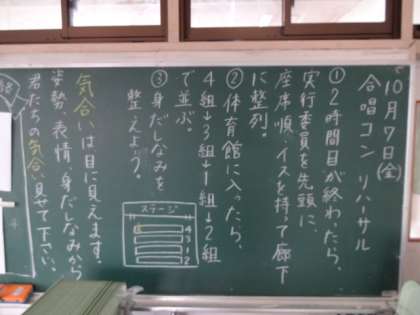 10月7日(金)
合唱コン リハーサル
①2時間目が終わったら、
実行委員を先頭に、
座席順、イスを持って廊下
に整列。
②体育館に入ったら、
4組→3組→1組→2組
で並ぶ。
③身だしなみを
整えよう。
ステージ
4
3
1
2
気合いは目に見えます。
姿勢、表情、身だしなみから
君たちの気合い見せて下さい。